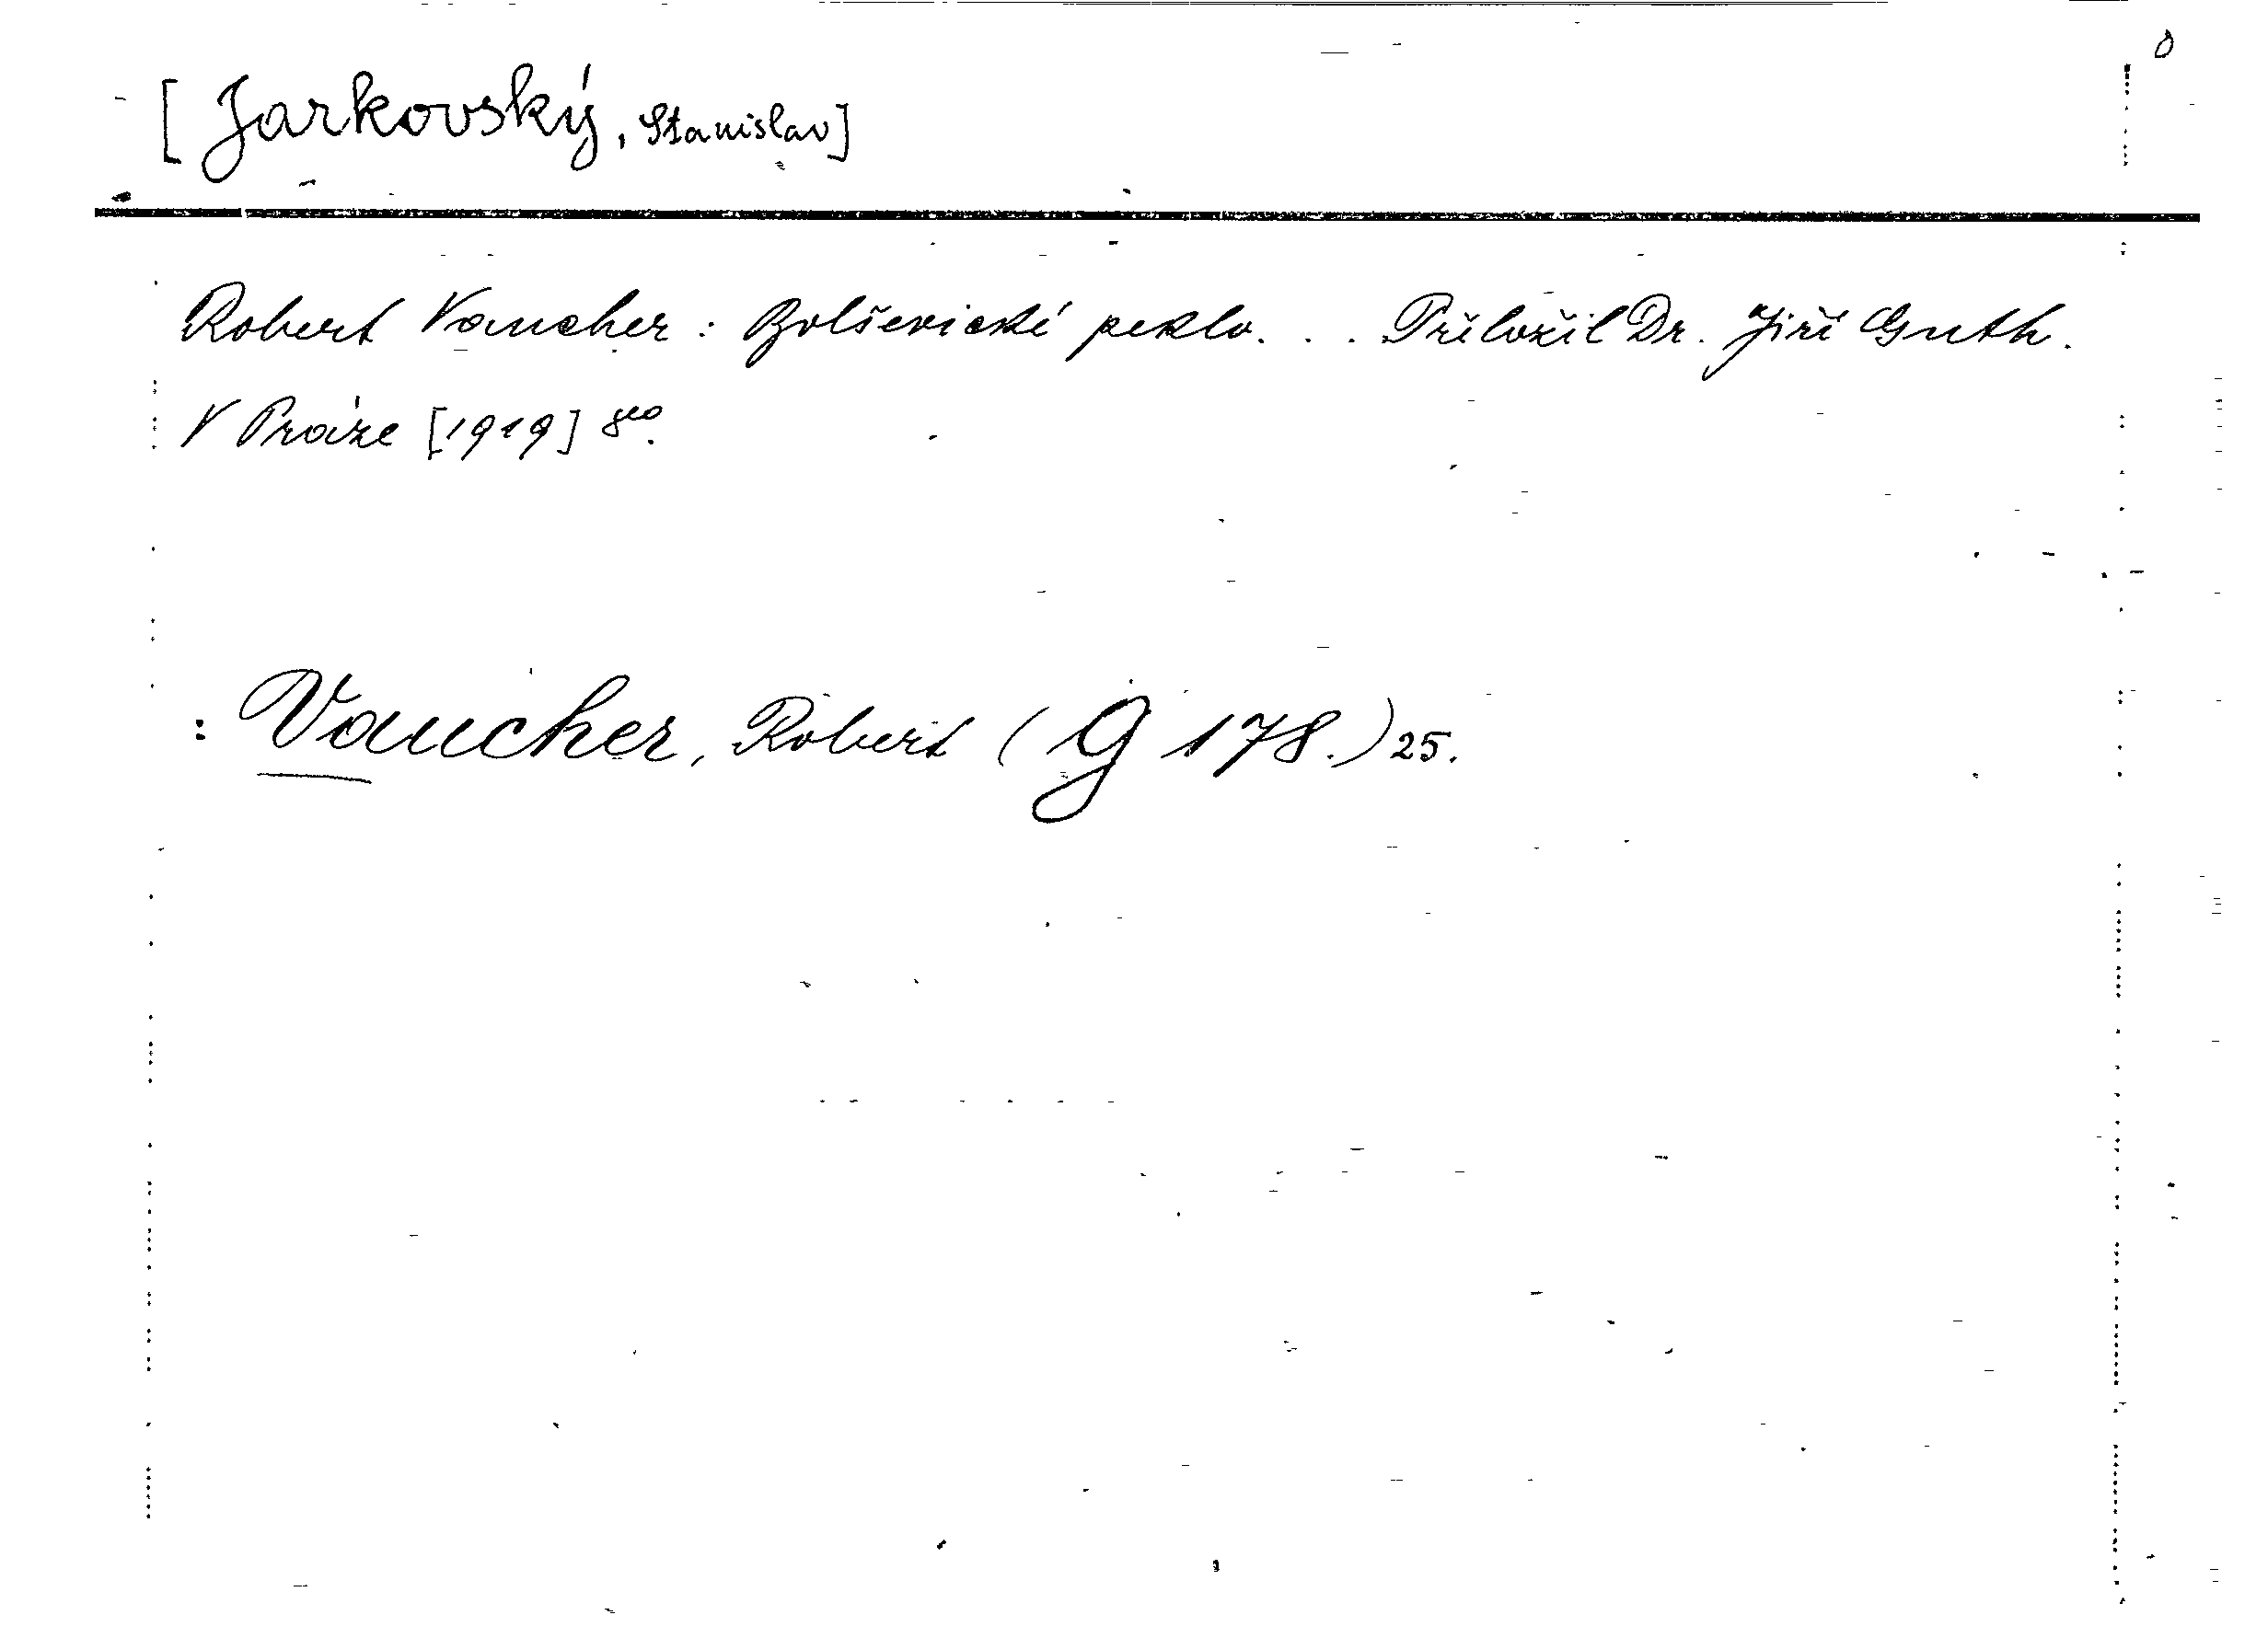 [Jarkovský, Stanislav]
Robert Vaucher: Bolševické peklo... Přeložil Dr. Jiří Guth.
V Praze [1919] 8°.
: Vaucher, Robert (G 178.) 25.